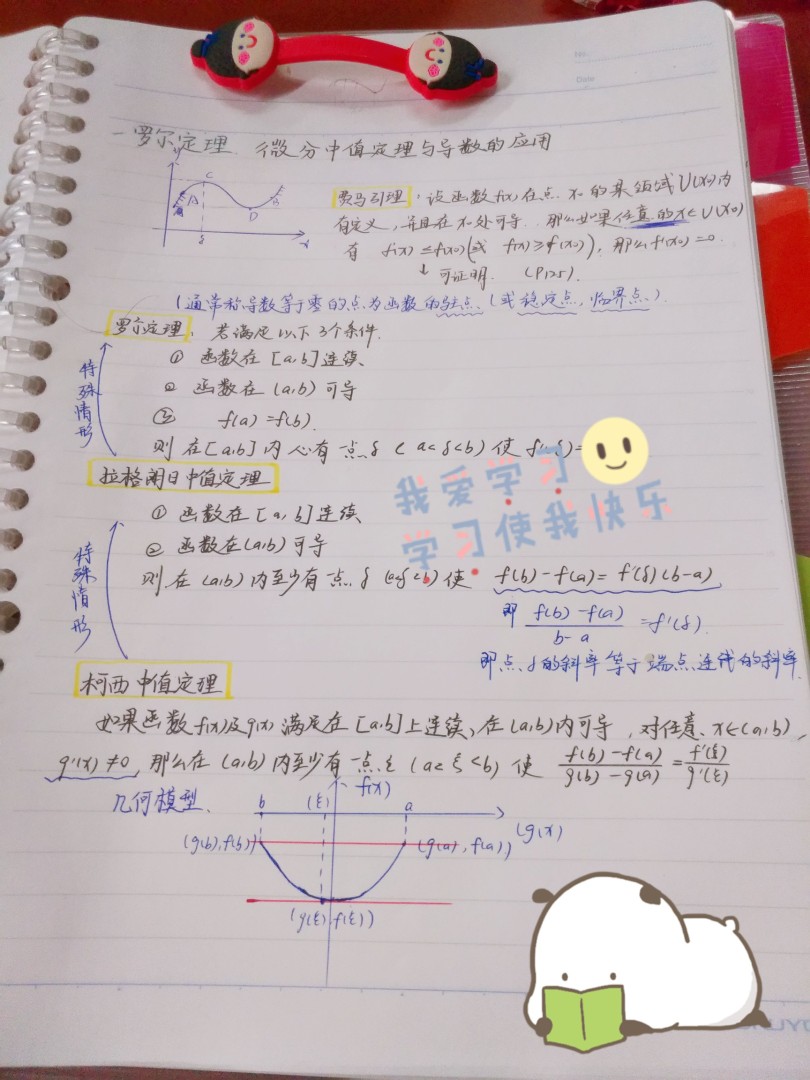 No.
Date
一 罗尔定理. 微分中值定理与导数的应用
y
C
A
B
D
ξ
x
费马引理: 设函数f(x)在点x0的某领域U(x0)内
有定义, 并且在x0处可导. 那么如果任意的x∈U(x0)
有 f(x)≤f(x0)(或 f(x)≥f(x0)), 那么f'(x0)=0.
↓可证明. (P125).
(通常称导数等于零的点为函数的驻点.(或稳定点, 临界点.)
罗尔定理. 若满足以下3个条件.
① 函数在[a,b]连续
② 函数在(a,b)可导
③ f(a)=f(b).
则在[a,b]内必有一点ξ(a<ξ<b)使f'(ξ)=
特殊情形
拉格朗日中值定理
① 函数在[a,b]连续
② 函数在(a,b)可导
则在(a,b)内至少有一点ξ(a<ξ<b)使 f(b)-f(a)=f'(ξ)(b-a)
即 f(b)-f(a)/b-a =f'(ξ).
即点ξ的斜率等于端点连线的斜率.
特殊情形
我爱学习
学习使我快乐
柯西中值定理
如果函数f(x)及g(x)满足在[a,b]上连续, 在(a,b)内可导, 对任意x∈(a,b),
g'(x)≠0, 那么在(a,b)内至少有一点ξ(a<ξ<b)使 f(b)-f(a)/g(b)-g(a) = f'(ξ)/g'(ξ)
几何模型.
f(x)
b (ξ) a
(g(x)
(g(b),f(b)) (g(a),f(a))
(g(ξ),f(ξ))